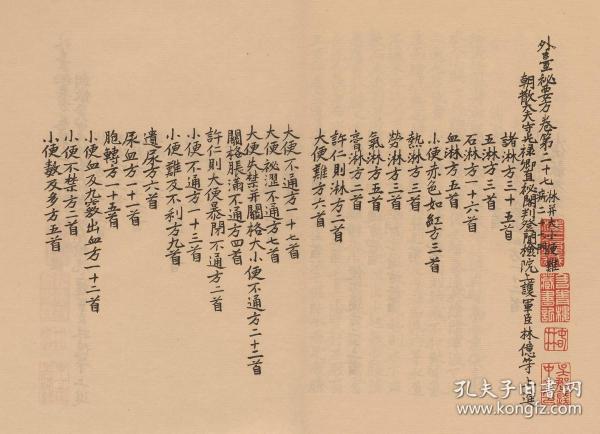 外臺祕要方卷第二十七 淋并大小便難病二十
朝散大夫守光祿卿直秘閣判登聞檢院上護軍臣林億等上進
諸淋方三十五首
五淋方三首
石淋方一十六首
血淋方五首
小便赤色如紅方三首
熱淋方三首
勞淋方三首
氣淋方五首
膏淋方二首
許仁則淋方二首
大便難方六首
大便不通方一十七首
大便祕澀不通方七首
大便失禁并關格大小便不通方二十二首
關格脹滿不通方四首
許仁則大便暴閉不通方二首
小便不通方一十三首
小便難及不利方九首
遺尿方六首
尿血方一十一首
胞轉方一十五首
小便血及九竅出血方一十二首
小便不禁方二首
小便數及多方五首
孔夫子旧书网
www.kongfz.com